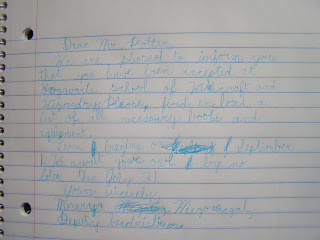 Dear Mr. Potter,
We are pleased to inform you
that you have been accepted at
Hogwarts School of Witchcraft and
Wizardry. Please, find enclosed a
list of all necessary books and
equipment.
Term begins on September
1. We await your owl by no
later than July 31
Yours sincerely,
Minerva Mcgonagall
Deputy headmistress